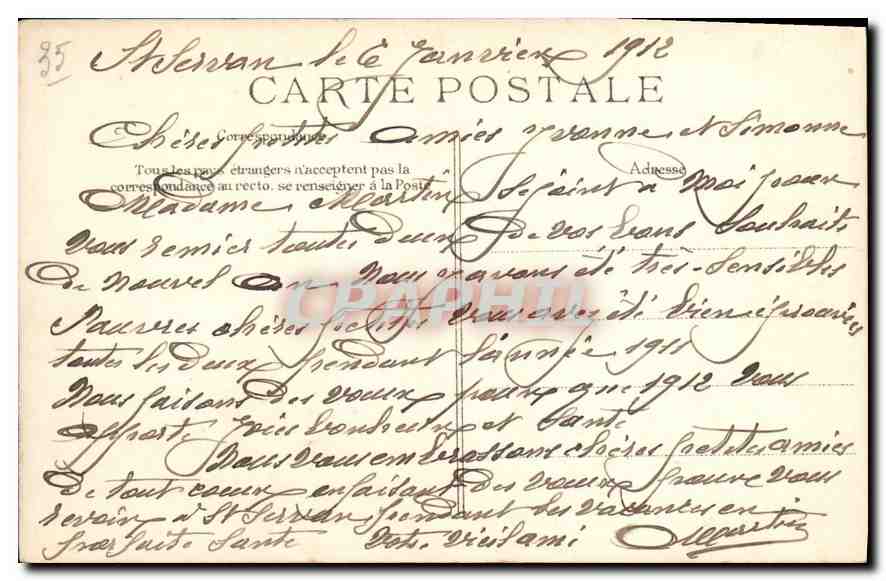 35
St Servan le 6 Janvier 1912
CARTE POSTALE
Correspondance
Chères petites Amies Yvonne et Simonne
Tous les pays étrangers n'acceptent pas la
correspondance au recto. se renseigner à la Poste
Adresse
Madame Martin se joint a Moi pour
Vous remier toutes deux de vos bons Souhaits
de nouvel an Nous y avons été très-sensibles
Pauvres chères petites Vous avez été bien éprouvées
toutes les deux pendant l'année 1911
Nous faisons des vœux pour que 1912 Vous
apporte Joies bonheur et Santé
Nous Vous embrassons chères petites amies
de tout cœur en faisant des vœux pour Vous
revoir à St Servan pendant les vacances en
parfaite Santé Votre Vieil ami Martin
CPAPHIL